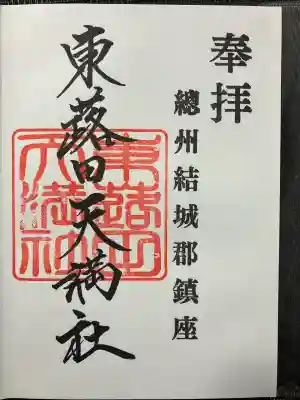 奉拝
總州結城郡鎮座
東蕗田天満社
東蕗田
天満社